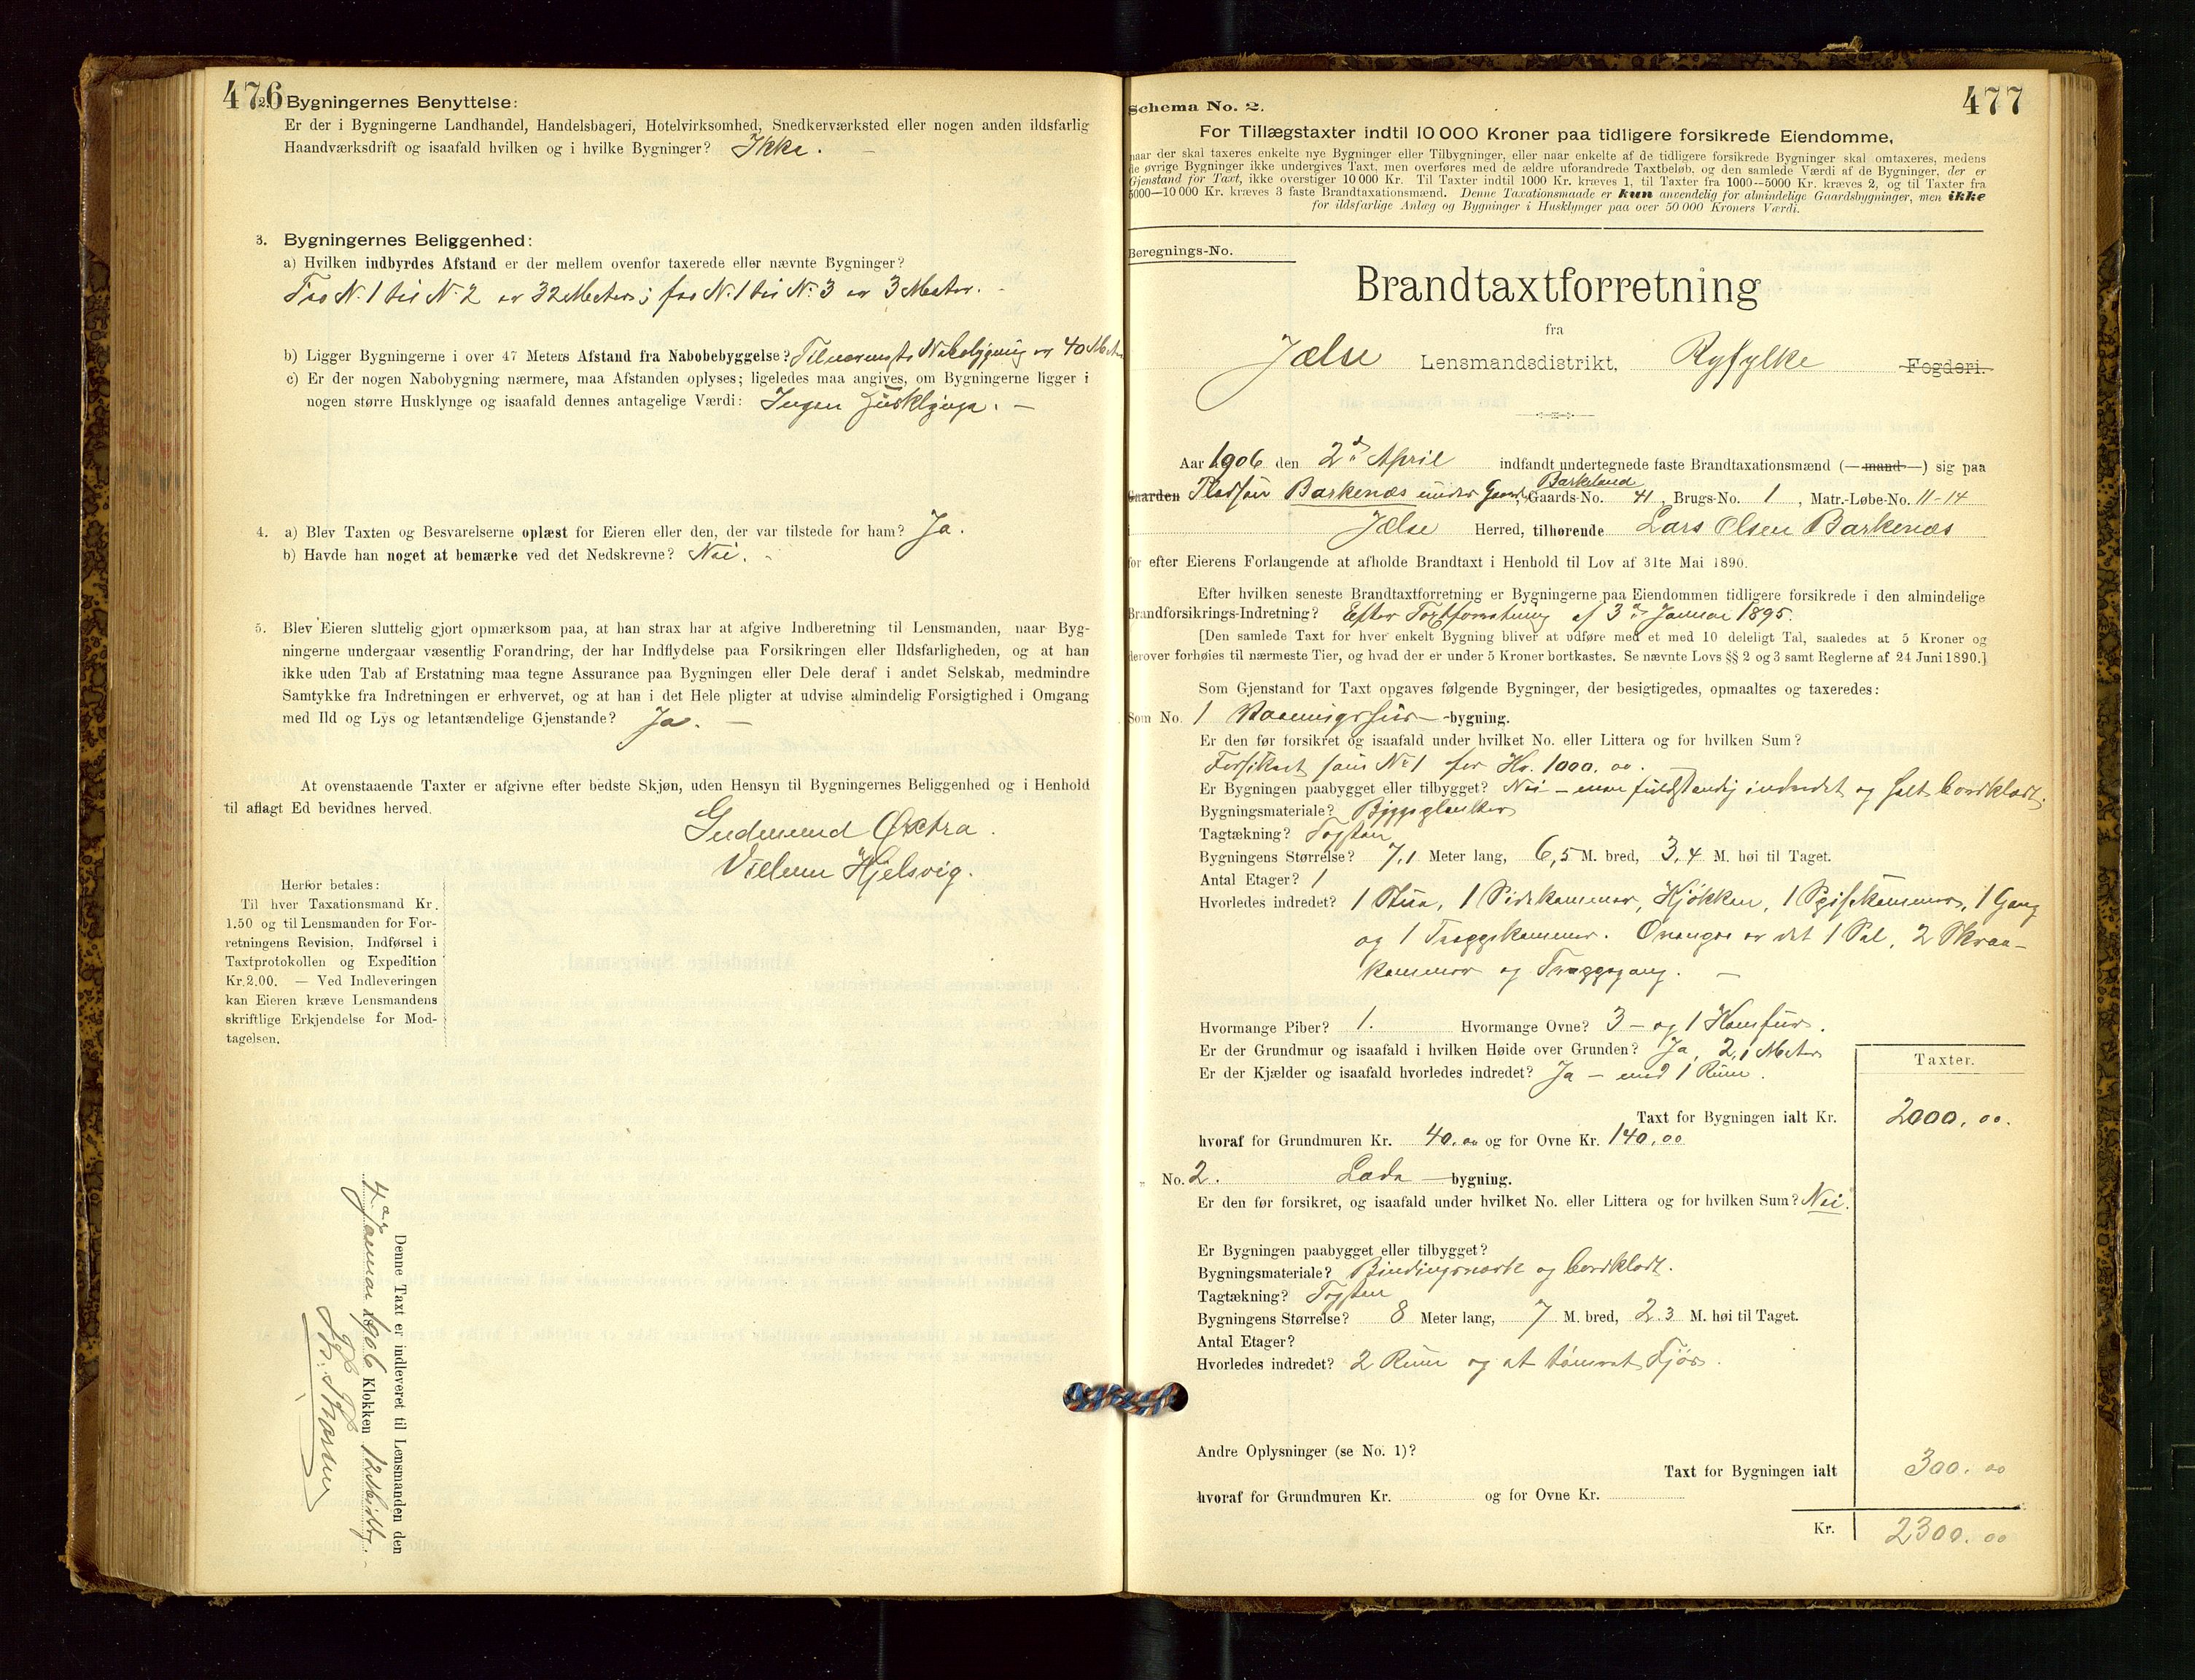 476
2. Bygningernes Benyttelse:
Er der i Bygningerne Landhandel, Handelsbageri, Hotelvirksomhed, Snedkerværksted eller nogen anden ildsfarlig
Haandværksdrift og isaafald hvilken og i hvilke Bygninger? Ikke. –
3. Bygningernes Beliggenhed:
a) Hvilken indbyrdes Afstand er der mellem ovenfor taxerede eller nævnte Bygninger?
Fra No 1 til No 2 er 32 Meter; fra No 1 til No 3 er 3 Meter. –
b) Ligger Bygningerne i over 47 Meters Afstand fra Nabobebyggelse? Nabobygning er 40 Meter
c) Er der nogen Nabobygning nærmere, maa Afstanden oplyses; ligeledes maa angives, om Bygningerne ligger i
nogen større Husklynge og isaafald dennes antagelige Værdi: Ingen Husklynge. –
4. a) Blev Taxten og Besvarelserne oplæst for Eieren eller den, der var tilstede for ham? Ja.
b) Havde han noget at bemærke ved det Nedskrevne? Nei. -
5. Blev Eieren sluttelig gjort opmærksom paa, at han strax har at afgive Indberetning til Lensmanden, naar Byg-
ningerne undergaar væsentlig Forandring, der har Indflydelse paa Forsikringen eller Ildsfarligheden, og at han
ikke uden Tab af Erstatning maa tegne Assurance paa Bygningen eller Dele deraf i andet Selskab, medmindre
Samtykke fra Indretningen er erhvervet, og at han i det Hele pligter at udvise almindelig Forsigtighed i Omgang
med Ild og Lys og letantændelige Gjenstande? Ja. –
At ovenstaaende Taxter er afgivne efter bedste Skjøn, uden Hensyn til Bygningernes Beliggenhed og i Henhold
til aflagt Ed bevidnes herved.
Gudmund Øxtra.
Vilum Hjelsvig.
Herfor betales:
Til hver Taxationsmand Kr.
1.50 og til Lensmanden for For-
retningens Revision, Indførsel i
Taxtprotokollen og Expedition
Kr. 2.00. — Ved Indleveringen
kan Eieren kræve Lensmandens
skriftlige Erkjendelse for Mod-
tagelsen.
Denne Taxt er indleveret til Lensmanden den
4de Januar 1906 Klokken 12 Middag. –
477
Schema No. 2.
For Tillægstaxter indtil 10 000 Kroner paa tidligere forsikrede Eiendomme,
naar der skal taxeres enkelte nye Bygninger eller Tilbygninger, eller naar enkelte af de tidligere forsikrede Bygninger skal omtaxeres, medens
de øvrige Bygninger ikke undergives Taxt, men overføres med de ældre uforandrede Taxtbeløb, og den samlede Værdi af de Bygninger, der er
Gjenstand for Taxt, ikke overstiger 10 000 Kr. Til Taxter indtil 1000 Kr. kræves 1, til Taxter fra 1000—5000 Kr. kræves 2, og til Taxter fra
5000—10 000 Kr. kræves 3 faste Brandtaxationsmænd. Denne Taxationsmaade er kun anvendelig for almindelige Gaardsbygninger, men ikke
for ildsfarlige Anlæg og Bygninger i Husklynger paa over 50 000 Kroners Værdi.
Beregnings-No.
Brandtaxtforretning
fra
Jælse Lensmandsdistrikt, Ryfylke Fogderi.
Aar 1906 den 2de April indfandt undertegnede faste Brandtaxationsmænd (—mand—) sig paa
Barkeland
Gaarden Pladsen Barkenæs under Gaard, Gaards-No. 41, Brugs-No. 1, Matr.-Løbe-No. 11-14
i Jælse Herred, tilhørende Lars Olsen Barkenæs
for efter Eierens Forlangende at afholde Brandtaxt i Henhold til Lov af 31te Mai 1890.
Efter hvilken seneste Brandtaxtforretning er Bygningerne paa Eiendommen tidligere forsikrede i den almindelige
Brandforsikrings-Indretning? Efter Taxtforretning af 3de Januar 1895.
[Den samlede Taxt for hver enkelt Bygning bliver at udføre med et med 10 deleligt Tal, saaledes at 5 Kroner og
derover forhøies til nærmeste Tier, og hvad der er under 5 Kroner bortkastes. Se nævnte Lovs §§ 2 og 3 samt Reglerne af 24 Juni 1890.]
Som Gjenstand for Taxt opgaves følgende Bygninger, der besigtigedes, opmaaltes og taxeredes:
Som No. 1 Vaaningshus- -bygning.
Er den før forsikret og isaafald under hvilket No. eller Littera og for hvilken Sum?
Forsikret som No 1 for Kr. 1000.00. –
Er Bygningen paabygget eller tilbygget? Nei – men fuldstændig indredet og helt bordklædt.
Bygningsmateriale? Bygplanker
Tagtækning? Tagsten
Bygningens Størrelse? 7,1 Meter lang, 6,5 M. bred, 3,4 M. høi til Taget.
Antal Etager? 1
Hvorledes indredet? 1 Stue, 1 Sidekammer, Kjøkken, 1 Spisekammer, 1 Gang
og 1 Trappekammer. Ovenpaa er det 1 Sal, 2 Skraa-
kammer og Trappegang. –
Hvormange Piber? 1. Hvormange Ovne? 3 – og 1 Komfur.
Er der Grundmur og isaafald i hvilken Høide over Grunden? Ja, 2,1 Meter
Er der Kjælder og isaafald hvorledes indredet? Ja – med 1 Rum.
Taxter.
Taxt for Bygningen ialt Kr. 2000.00.
hvoraf for Grundmuren Kr. 40.00 og for Ovne Kr. 140.00
" No. 2. Lade —bygning.
Er den før forsikret, og isaafald under hvilket No. eller Littera og for hvilken Sum? Nei.
Er Bygningen paabygget eller tilbygget?
Bygningsmateriale? Bindingsværk og bordklædt.
Tagtækning? Tagsten
Bygningens Størrelse? 8 Meter lang, 7 M. bred, 2.3 M. høi til Taget.
Antal Etager?
Hvorledes indredet? 2 Rum og et tømret Fjøs.
Andre Oplysninger (se No. 1)?
Taxt for Bygningen ialt 300.00
hvoraf for Grundmuren Kr. og for Ovne Kr.
Kr. 2300.00